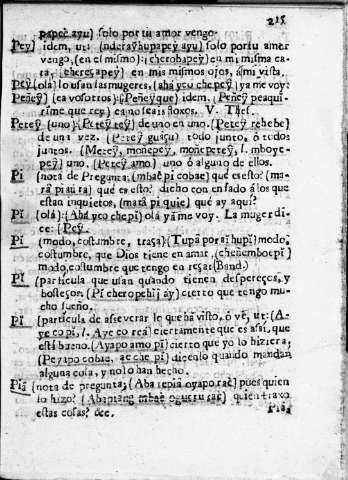 215
papeè ayu) solo por tu amor vengo.
Peỹ) idem, ut: (nderaỹhupapeỹ ayu) solo por tu amor
vengo, (en el mismo): (cherobapeỹ) en mi misma ca-
ra, (chereçapeỹ) en mis mismos ojos, a mi vista.
Peỹ (ola) lo usan las mugeres, (aháyco chepeỹ) ya me voy?
Peñeỹ (ea vosotros) (Peñeỹque) idem. Peñeỹ peaquĩ-
rime que rey) ea no seais floxos. V. Thes.
Peteỹ (uno) (Peteỹ teỹ) de uno en uno. (Peteỹ rehebe)
de una vez. (Peteỹ guaçu) todo junto, ò todos
juntos. (Meteỹ, moñepeỹ, moñepeteỹ, l. mboye-
peỹ) uno. (Peteỹ amo) uno ò alguno de ellos.
Pí (nota de Pregunta, (mbaè pi cobae) que es esto? (ma-
rã pi aũ ra) què es esto? dicho con enfado à los que
estan inquietos, (marã pi quie) què ay aqui?
Pí (olá): (Abá yco chepí) olá yà me voy. La muger di-
ce: (Peỹ.
Pí (modo, costumbre, traza) (Tupã poraĩhupí) modo,
costumbre, que Dios tiene en amar, (cheñemboepí)
modo, costumbre que tengo en reçar (Band.)
Pí (particula que usan quando tienen desperezos, y
bosteços: (Pí cheropehĩĩ áy) cierto que tengo mu-
cho sueño.
Pí (particula de asseverar lo que ha visto, ò vè, ut: (A-
ye co pí, l. Aye co reà) ciertamente que es assi, que
està bueno. (Ayapo amo pí) cierto que yo lo hiziera,
(Peyapo cobae, ae che pi) diçenlo quando mandan
alguna cosa, y no lo han hecho.
Piã (nota de pregunta, (Aba tepiã oyapo raè) pues quien
lo hizo? (Abapiang mbaè ogueru raè) quien traxo
estas cosas? &c.